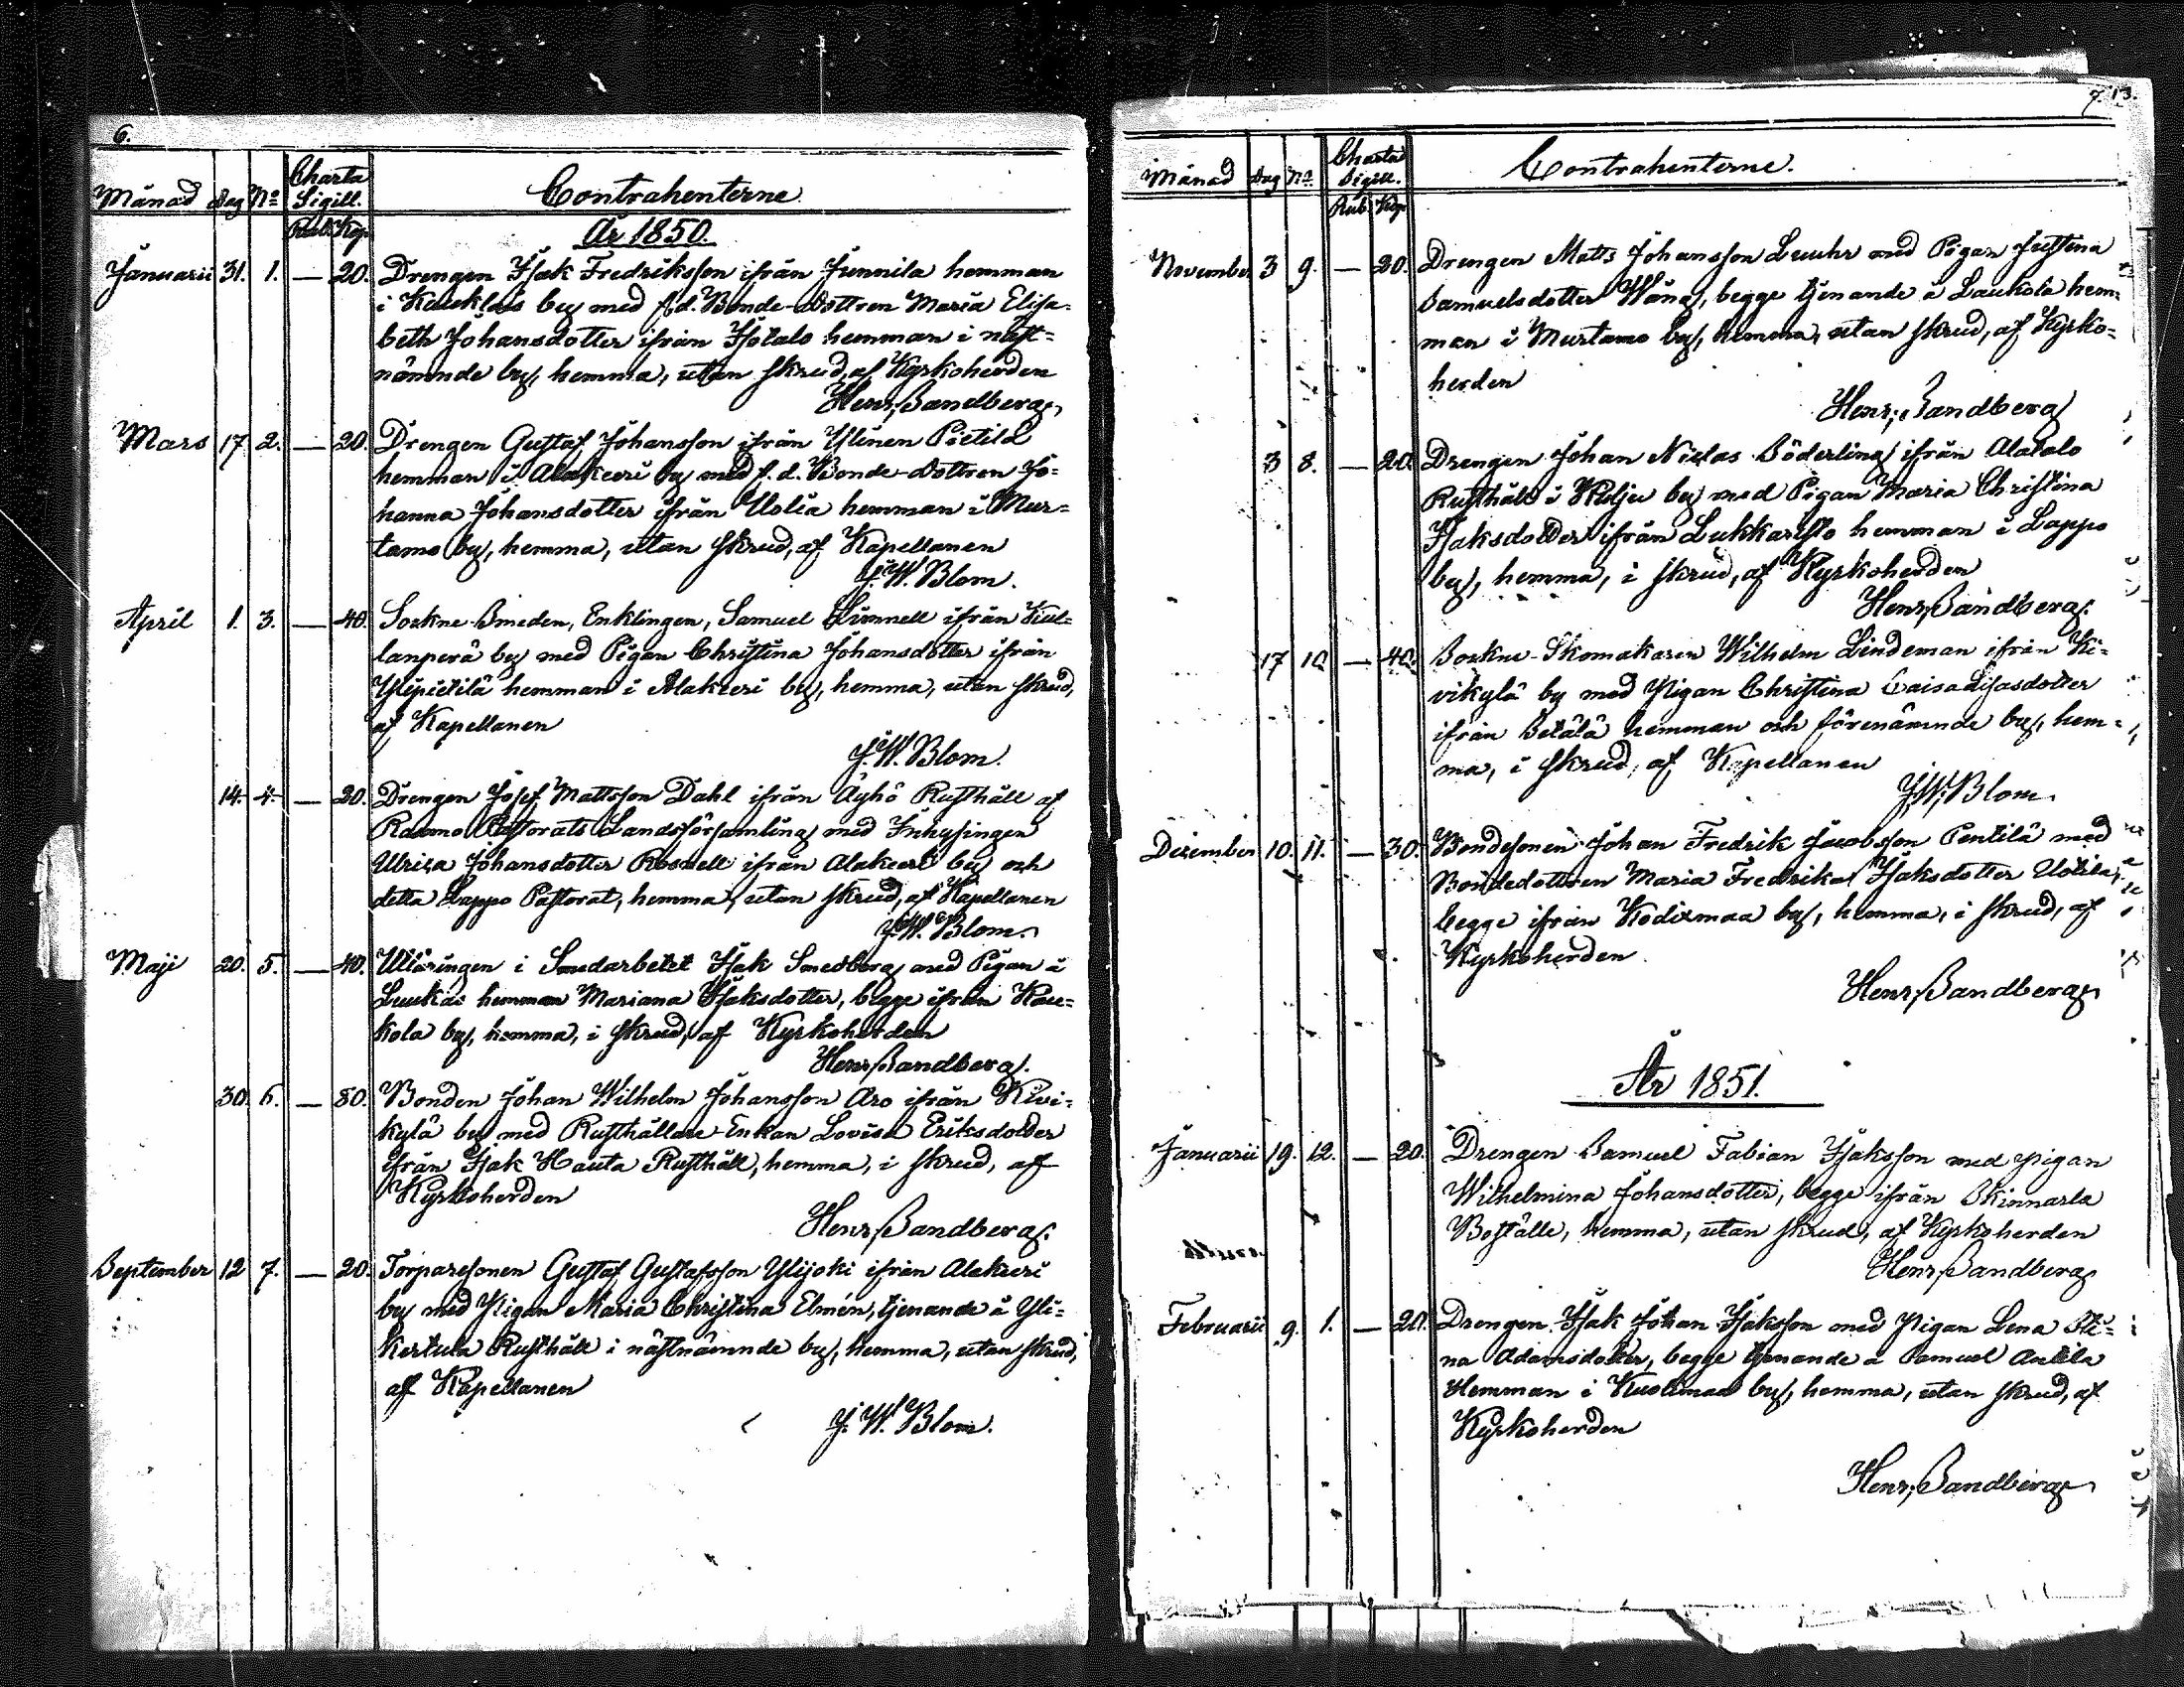 6.
Månad Dag No Charta Sigill. Contrahenterne
Rub. Kop.
År 1850.
Januarii 31. 1. — 20. Drengen Isak Fredriksson ifrån Junnila hemman
i Kauklais by med f.d. Bonde-Dottren Maria Elisa-
beth Johansdotter ifrån Isotalo hemman i näst-
nämnde by, hemma, utan skrud, af Kyrkoherden
Henr. Sandberg
Mars 17 2. — 20. Drengen Gustaf Johansson ifrån Ylinen Pietilä
hemman i Alakeeri by med f.d. Bonde-Dottren Jo-
hanna Johansdotter ifrån Uolia hemman i Mur-
tamo by, hemma, utan skrud, af Kapellanen
J. W. Blom.
April 1. 3. — 40. Sockne-Smeden, Enklingen, Samuel ifrån Kul-
lanperä by med Pigan Christina Johansdotter ifrån
Ylipietilä hemman i Alakeeri by, hemma, utan skrud,
af Kapellanen
J. W. Blom.
14. 4. — 20. Drengen Josef Mattsson Dahl ifrån Äyhö Rusthåll af
Raumo Pastorats Landsförsamling med Inhysingen
Ulrica Johansdotter Rosnell ifrån Alakeeri by och
detta Lappo Pastorat, hemma, utan skrud, af Kapellanen
J. W. Blom.
Maji 20. 5. — 40. Utläringen i Smedarbetet Isak Smedberg med Pigan å
Luukas hemman Mariana Isaksdotter, begge ifrån Kau-
kola by, hemma, i skrud, af Kyrkoherden
Henr. Sandberg.
30. 6. — 80. Bonden Johan Wilhelm Johansson Aro ifrån Kivi-
kylä by med Rusthållare-Enkan Lovisa Eriksdotter
ifrån Isak Hauta Rusthåll, hemma, i skrud, af
Kyrkoherden
Henr. Sandberg.
September 12 7. — 20. Torparesonen Gustaf Gustafsson Ylijoki ifrån Alakeeri
by med Pigan Maria Christina Elmén, tjenande å Yli-
Kertula Rusthåll i nästnämnde by, hemma, utan skrud,
af Kapellanen
J. W. Blom.
7. 13.
Månad Dag No Charta Sigill. Contrahenterne.
Rub. Kop.
November 3 9. — 20. Drengen Matts Johansson Luuhr med Pigan Justina
Samuelsdotter Wäng, begge tjenande å Laukola hem-
man i Murtamo by, hemma, utan skrud, af Kyrko-
herden
Henr. Sandberg
3 8. — 20. Drengen Johan Niclas Söderling ifrån Alatalo
Rusthåll i Kulju by med Pigan Maria Christina
Isaksdotter ifrån hemman i Lappo
by, hemma, i skrud, af Kyrkoherden
Henr. Sandberg.
17 10. — 40. Sockne-Skomakaren Wilhelm Lindeman ifrån Ki-
vikylä by med Pigan Christina Caisa Isasdotter
ifrån Setälä hemman och förenämnde by, hem-
ma, i skrud, af Kapellanen
J. W. Blom.
December 10. 11. — 30. Bondesonen Johan Fredrik Jacobsson Pentilä med
Bondedottren Maria Fredrika Isaksdotter Uotila,
begge ifrån Kodixmaa by, hemma, i skrud, af
Kyrkoherden
Henr. Sandberg
År 1851.
Januarii 19. 12. — 20. Drengen Samuel Fabian Isaksson med pigan
Wilhelmina Johansdotter, begge ifrån Skinnarla
Boställe, hemma, utan skrud, af Kyrkoherden
Henr. Sandberg
Februarii 9. 1. — 20. Drengen Isak Johan Isaksson med Pigan Lena Sti-
na Adamsdotter, begge tjenande å Samuel Antila
Hemman i Kuolimaa by, hemma, utan skrud, af
Kyrkoherden
Henr. Sandberg